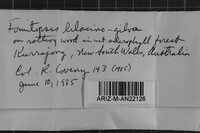 Fomitopsis lilacino-gilva
on rotting wood in wet sclerophyll forest
Kurrajong, New South Wales, Australia
Col. K. 143 (1985)
June 10, 1985
ARIZ-M-AN22126